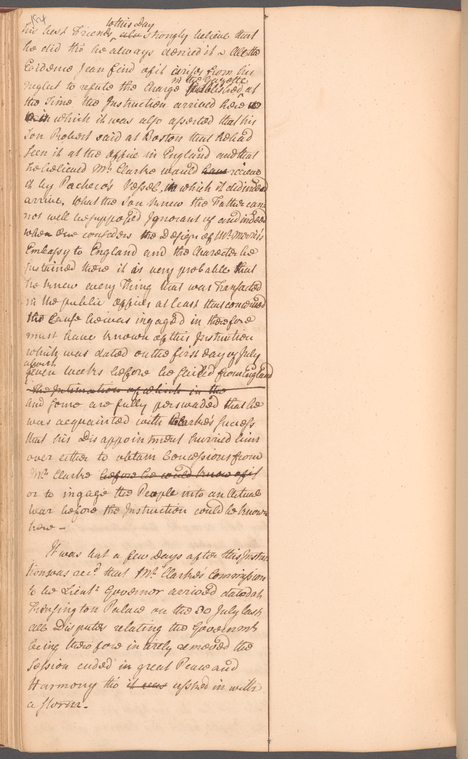 to this Day
his best Friends also strongly believe that
he did tho' he always denied it & all the
Evidence I can find of it arises from his
neglect to refute the Charge published at
in the Gazette
the Time the Instruction arrived here
in which it was also asserted that his
Son Robert said at Boston that he had
seen it at the office in England and that
he believed Mr. Clarke would have receive
it by Pacheco's Vessel, in which it did indeed
arrive, what the Son knew the Father can
not well be supposed Ignorant of and indeed
when One considers the Design of Mr. Morris's
Embassy to England and the Character he
sustained there it is very probable that
he knew every thing that was Transacted
in the public offices at least that concerned
the Cause he was ingaged in therefore
must have known of this Instruction
which was dated on the first day of July
about
seven weeks before he sailed from England
the Intimation of which in the
and some are fully perswaded that he
was acquainted with Clarke's success
that his Disappointment hurried him
over either to obtain Concessions from
Mr. Clarke before he could know of it
or to ingage the People into an actual
war before the Instruction could be known
here –
It was but a few Days after this Instruc
tion was that Mr. Clarke's Commission
to be Lieut. Governor arrived dated at
Kensington Palace on the 30 July last
all Disputes relating the Government
being therefore intirely removed the
Session ended in great Peace and
Harmony tho' it was ushed in with
a storm. –